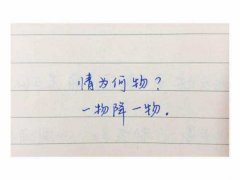 情为何物？
一物降一物.